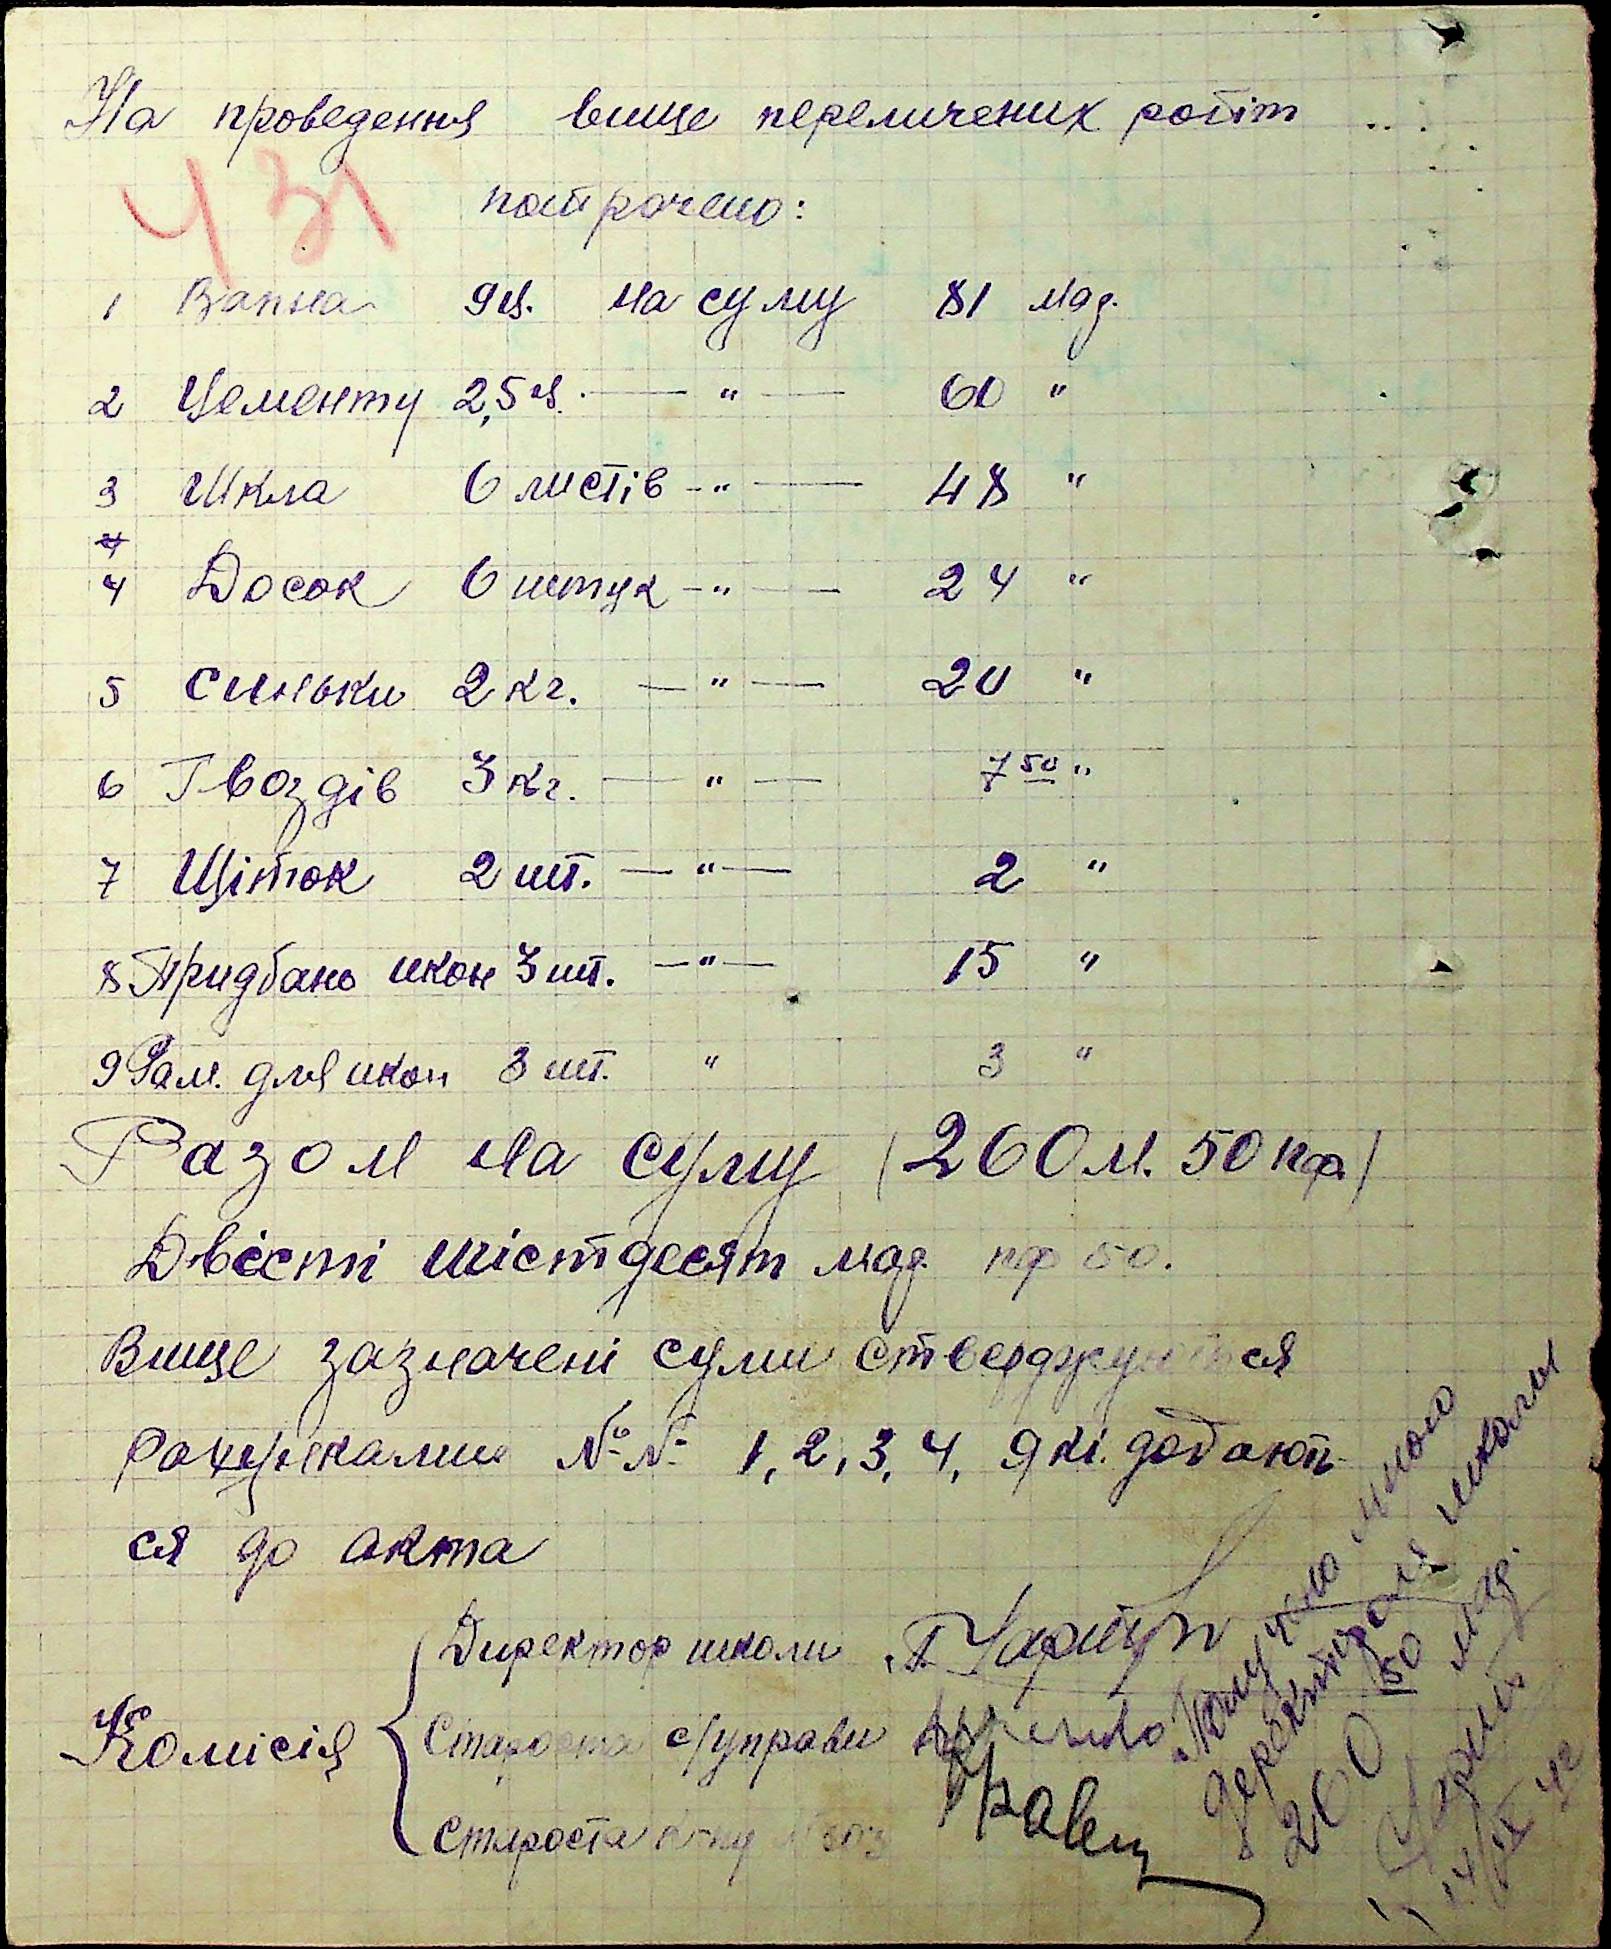 На проведення вище перелічених робіт
431
потрачено:
1 Вапна 9 ц. на суму 81 мар.
2 Цементу 2,5 ц. — " — 60 "
3 Шкла 6 листів - " — 48 "
4
4 Досок 6 штук - " — 24 "
5 Синьки 2 кг. — " — 20 "
6 Гвоздів 3 кг. — " — 7 50 "
7 Щіток 2 шт. — " — 2 "
8 Придбань икон 3 шт. — " — 15 "
9 Рам. для икон 3 шт. " 3 "
Разом на суму (260 м. 50 пф)
Двісті шістдесят мар. пф 50.
Вище зазначені суми стверджуються
рахунками №№ 1, 2, 3, 4, які додают-
ся до акта
Директор школи
Комісія
Староста с/управи
Староста
Кравец
мною
директором школи
260 50 мар.
14/IX 42